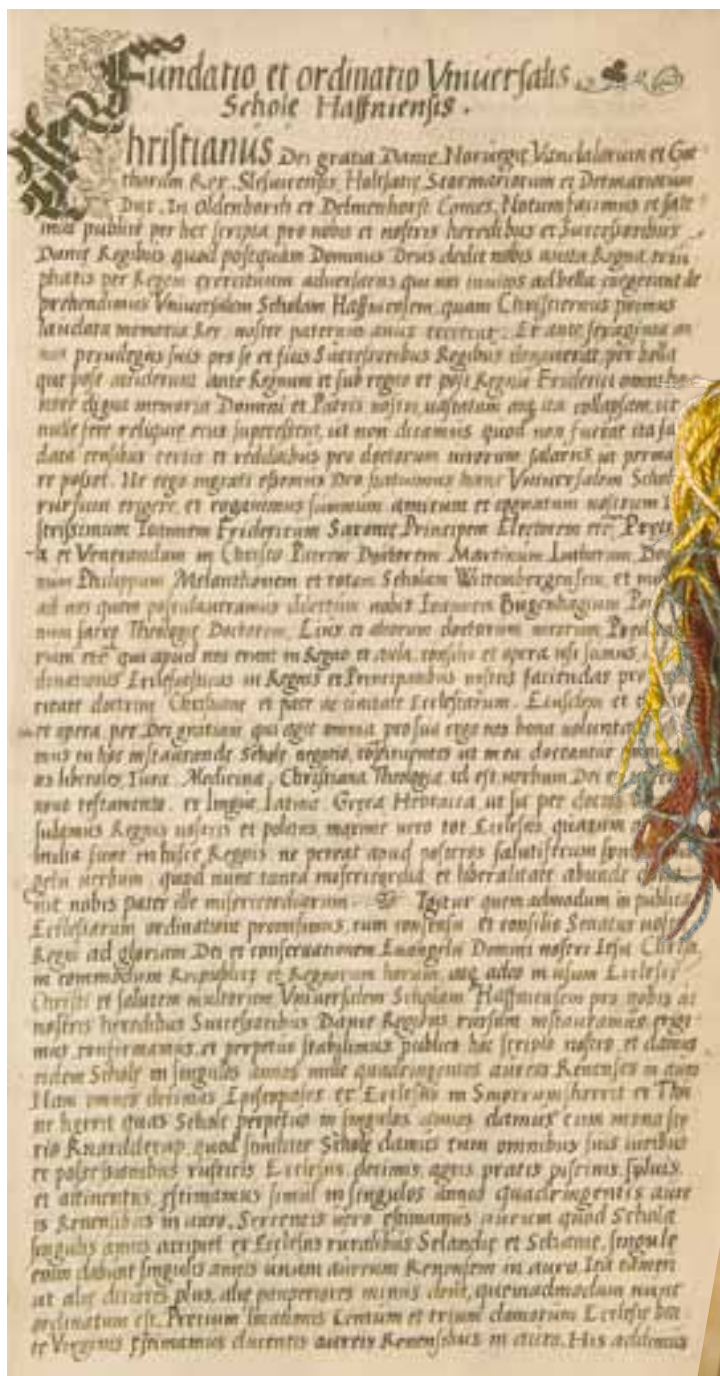 Fundatio et ordinatio Vniuersalis
Schole Haffniensis.
Christianus Dei gratia Danie, Noruegie, Vandalorum et Got
thorum Rex, Slesuicensis, Holsatie, Stormariorum et Detmariorum
Dux, In Oldenborch et Delmenhorst Comes, Notum facimus et fate
mur publice per hec scripta pro nobis et nostris heredibus et Successoribus
Danie Regibus quod postquam Dominus Deus dedit nobis
exercitum ad bella coegerant de
prehendimus Vniuersalem Scholam Haffniensem, quam Christiernus primus
laudata memoria Rex, noster paternus auus erexerat, Et ante sexaginta an
nos suis pro se et suis Successoribus Regibus per bella
que post acciderunt ante Regnum et sub regno et post Regnum Friderici omni ho
nore digne memorie Domini et Patris nostri ita collapsam, ut
reliquie eius superessent, ut non dicamus quod non fuerat ita
data censibus certis et redditibus pro doctorum uirorum salariis ut perma
re posset. Ne ergo ingrati essemus Deo statuimus hanc Vniuersalem Schol
rursum erigere, et rogauimus summum amicum et cognatum nostrum
strissimum Ioannem Fridericum Saxonie Principem Electorem etc
et Venerandum in Christo Patrem Doctorem Martinum Lutherum, Do
num Philippum Melanthonem et totam Scholam Wittembergensem, et
ad nos quem postulaueramus dilectum nobis Ioannem Bugenhagium Po
num sacre Theologie Doctorem, Eius et aliorum doctorum uirorum Pred
rum etc qui apud nos erant in Regno et aula, consilio et opera usi sumus
dinationes Ecclesiasticas in Regnis et Principatibus nostris faciendas pro
ritate doctrine Christiane et pace ac unitate Ecclesiarum. Eiusdem et
et opera per Dei gratiam qui agit omnia pro sua erga nos bona uolunta
mur in hoc instaurande Schole negotio, constituentes ut in ea doceantur
es liberales, Iura, Medicina, Christiana Theologia id est uerbum Dei
nouo testamento, et lingue, Latina, Greca Hebraica, ut sic per doctos
sulamus Regnis nostris et politiis, maxime uero tot Ecclesiis, quarum
milia sunt in hisce Regnis, ne pereat apud posteros salutiferum
gelii uerbum, quod nunc tanta misericordia et liberalitate abunde
uit nobis pater ille misericordiarum Igitur quemadmodum in publica
Ecclesiarum ordinatione promisimus, cum consensu et consilio Senatus nost
Regni ad gloriam Dei et conseruationem Euangelii Domini nostri Iesu Christi
in commodum Reipublice et Regnorum horum, atque adeo in usum Ecclesie
Christi et salutem multorum Vniuersalem Scholam Haffniensem pro nobis ac
nostris heredibus Successoribus Danie Regibus rursum instauramus, erigi
mus, confirmamus, et perpetuo stabilimus publico hoc scripto nostro, et damus
eidem Schole in singulos annos mille quadringentos aureos Renenses in auro
Nam omnes decimas Episcopales ex Ecclesiis in Smorrumsherrit et Thu
ne herrit quas Schole perpetuo in singulos annos damus cum monaste
rio Knardderup, quod similiter Schole damus cum omnibus suis iuribus
et possessionibus rusticis Ecclesiis, decimis, agris pratis piscinis, syluis,
et attinentiis, estimamus simul in singulos annos quadringentis aure
is Renensibus in auro. Sexcentis uero estimamus aurum quod Schola
singulis annis accipiet ex Ecclesiis ruralibus Selandie et Schanie, singule
enim dabunt singulis annis unum aureum Renensem in auro. Ita tamen
ut alie ditiores plus, alie pauperiores minus dent, quemadmodum nunc
ordinatum est. Precium locationis Centum et trium domorum Ecclesie bea
te Virginis estimamus ducentis aureis Renensibus in auro. His addimus